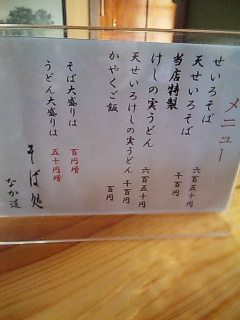 メニュー
せいろそば 六百五十円
天せいろそば 千百円
当店特製
けしの実うどん 六百五十円
天せいろけしの実うどん 千百円
かやくご飯 百円
そば大盛りは 百円増
うどん大盛りは 五十円増
そば処
なか道